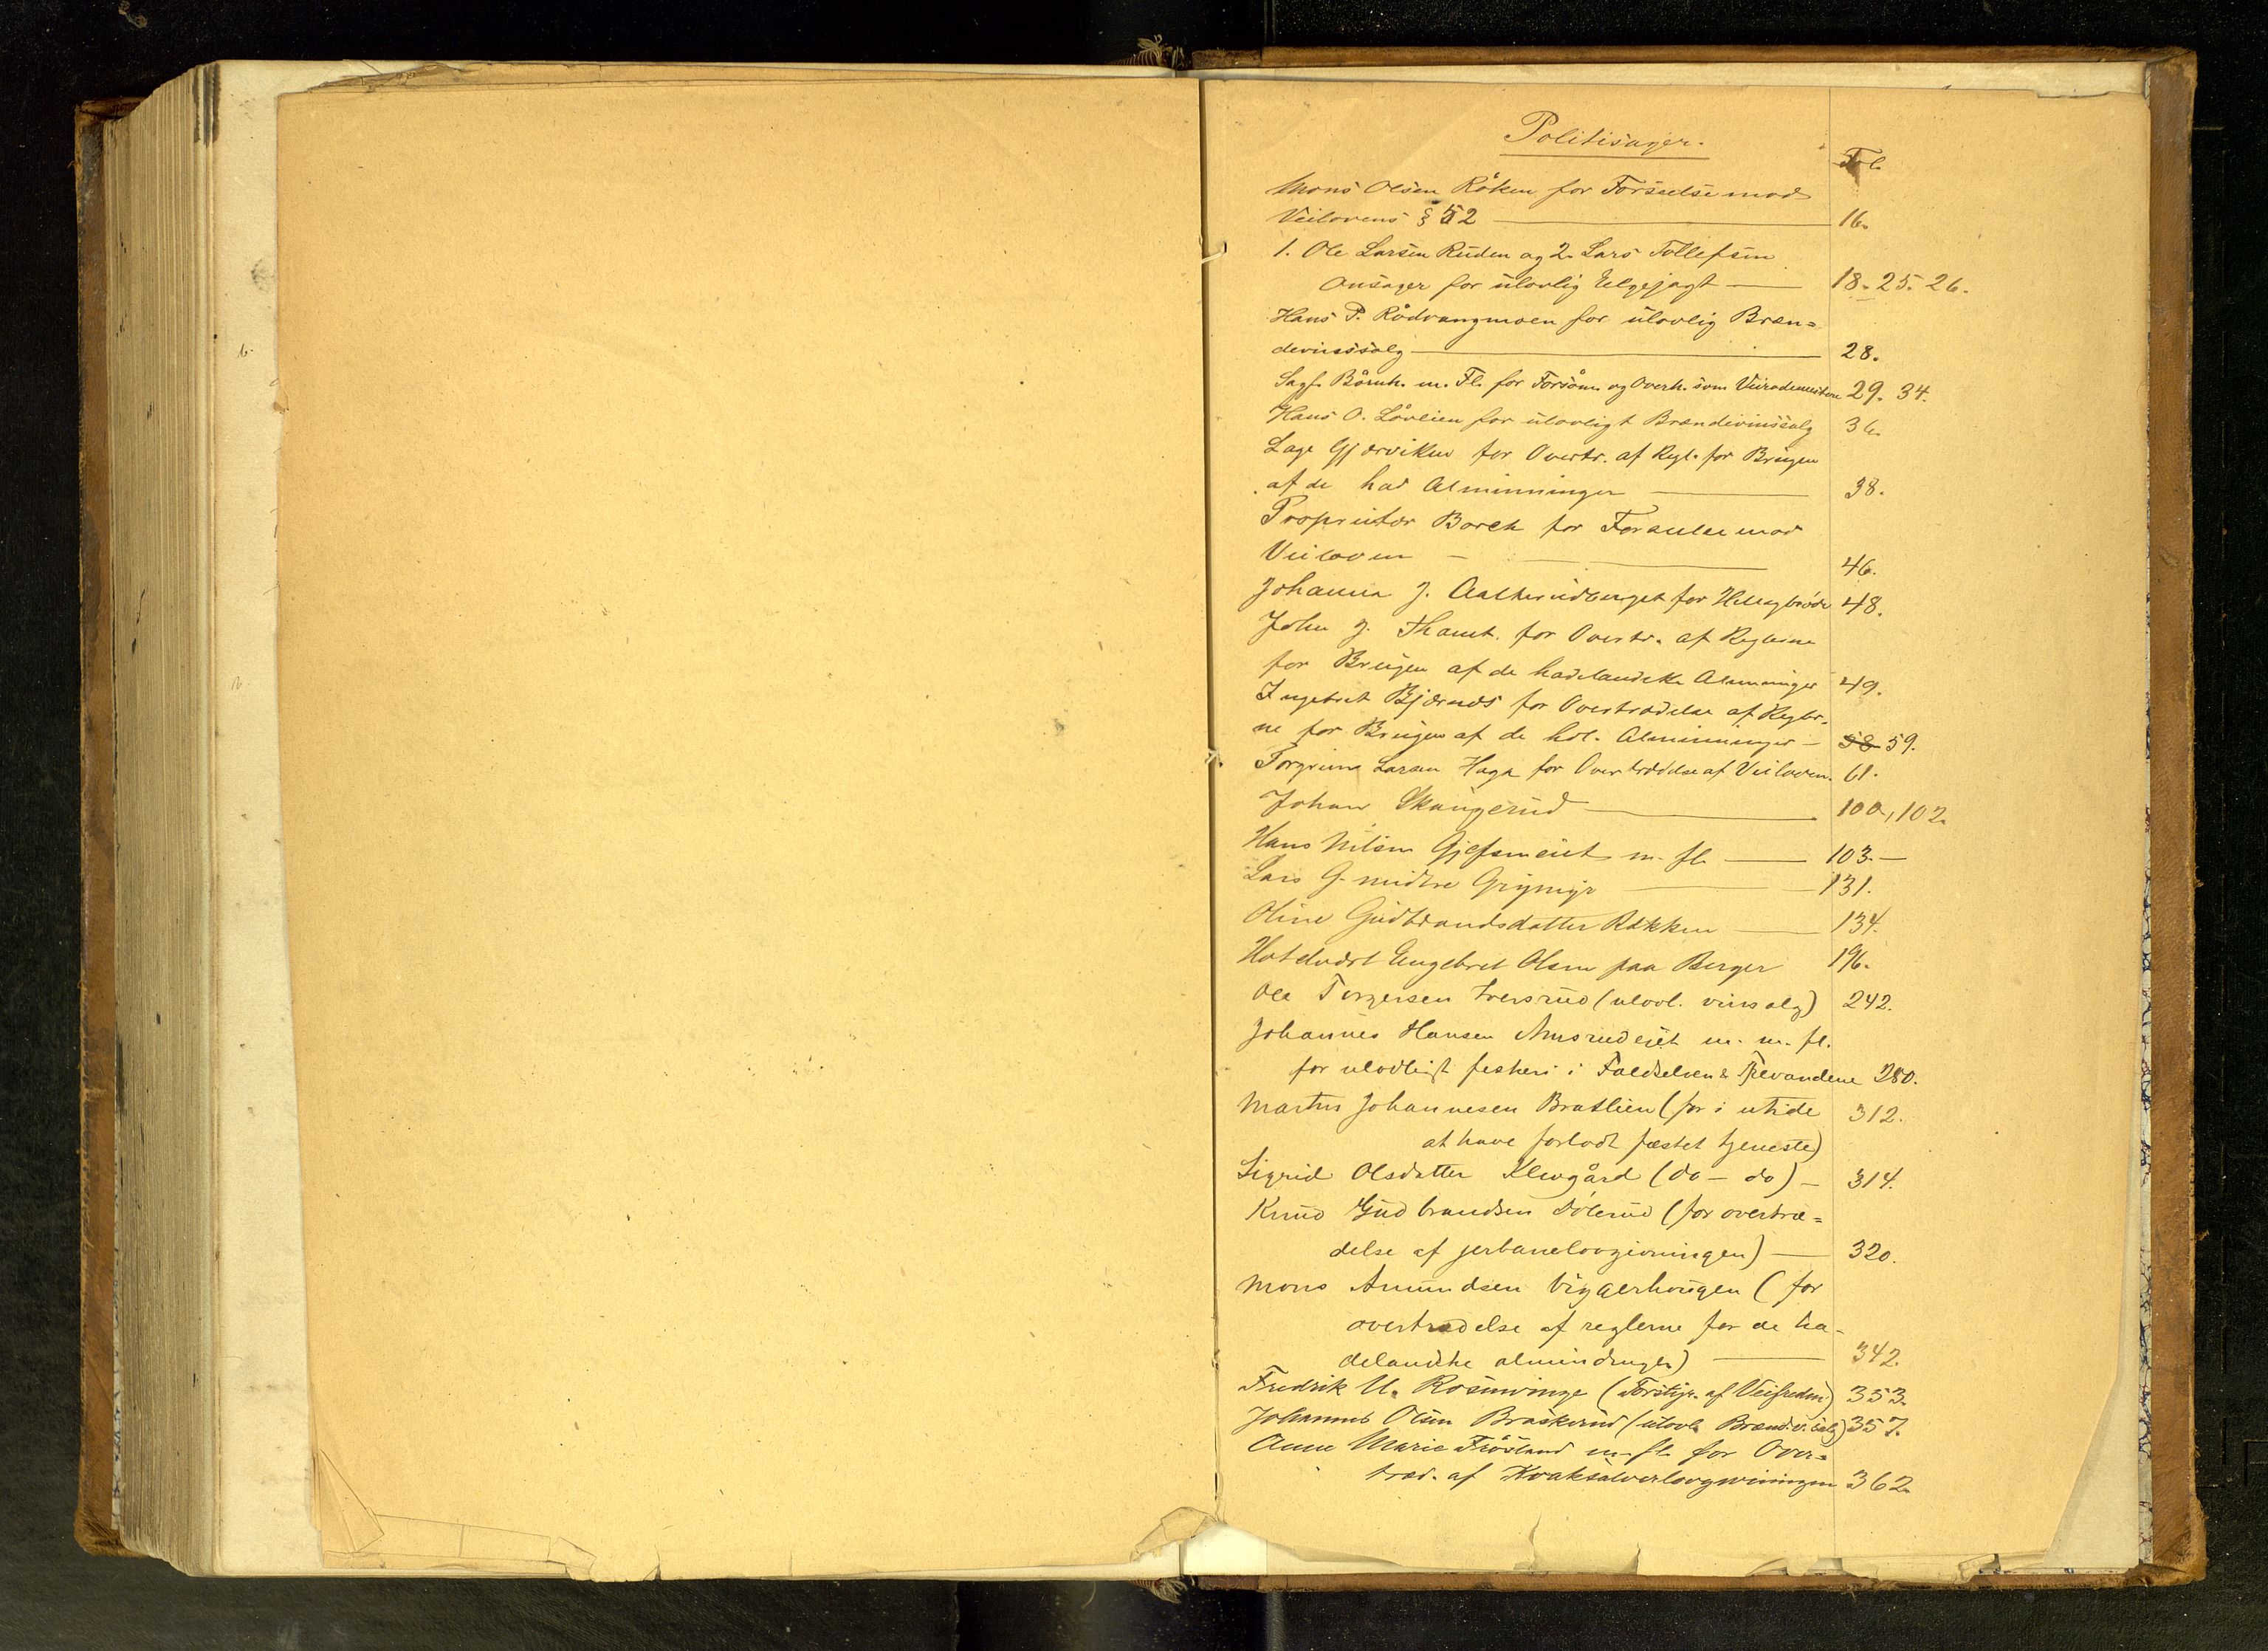 Politisager.
Fol.
Mons Olsen Røken for Forseelse mod
Veilovens § 52 16.
1. Ole Larsen Ruden og 2. Lars Tollefsen
Onsager for ulovlig Elgejagt 18. 25. 26.
Hans P. Rødvangmoen for ulovlig Bræn=
devinssalg 28.
Sagf. m. Fl. for Forsøm. og Overh. som 29. 34.
Hans O. Løvlien for ulovligt Brændevinssalg 36.
Lage Gjærviken for Overtr. af Regl. for Brugen
af de had Alminninger 38.
Proprietær Borch for Forseelse mod
Veiloven 46.
Johanna J. for Helligbrøde 48.
John J. for Overtr. af Reglerne
for Brugen af de hadelandske Alminninger 49.
Ingebret Bjørnes for Overtrædelse af Regler-
ne for Brugen af de hdl. Alminninger - 58 59.
Torgrim Larsen Haga for Overtrædelse af Veiloven. 61.
Johan Skaugerud 100, 102.
Hans Nilsen Gjefsmeiet m. fl. 103.-
Lars G. midtre Grymyr 131.
Oline Gudbrandsdatter Røkken 134.
Engebret Olsen paa Berger 196.
Ole Torgersen Iversrud (ulovl. vinsalg) 242.
Johannes Hansen Amsrudeiet m. m. fl.
for ulovligt fiskeri i Faldselven & Trevandene 280.
Martin Johannesen Bratlien (for i utide 312.
at have forladt fæstet tjeneste)
Sigrid Olsdatter Klevgård (do - do) - 314.
Knud Gudbrandsen Dølerud (for overtræ=
delse af jerbanelovgivningen) 320.
Mons Amundsen Viggerhougen (for
overtrædelse af reglerne for de ha-
delandske almindinger) 342.
Fredrik U. Rosenvinge (Forstyr. af Veifreden) 353.
Johannes Olsen Braskerud (ulovl. Brændev. salg) 357.
Anne Marie Frøsland m. fl. for Over=
træd. af Kvaksalverlovgivningen 362.